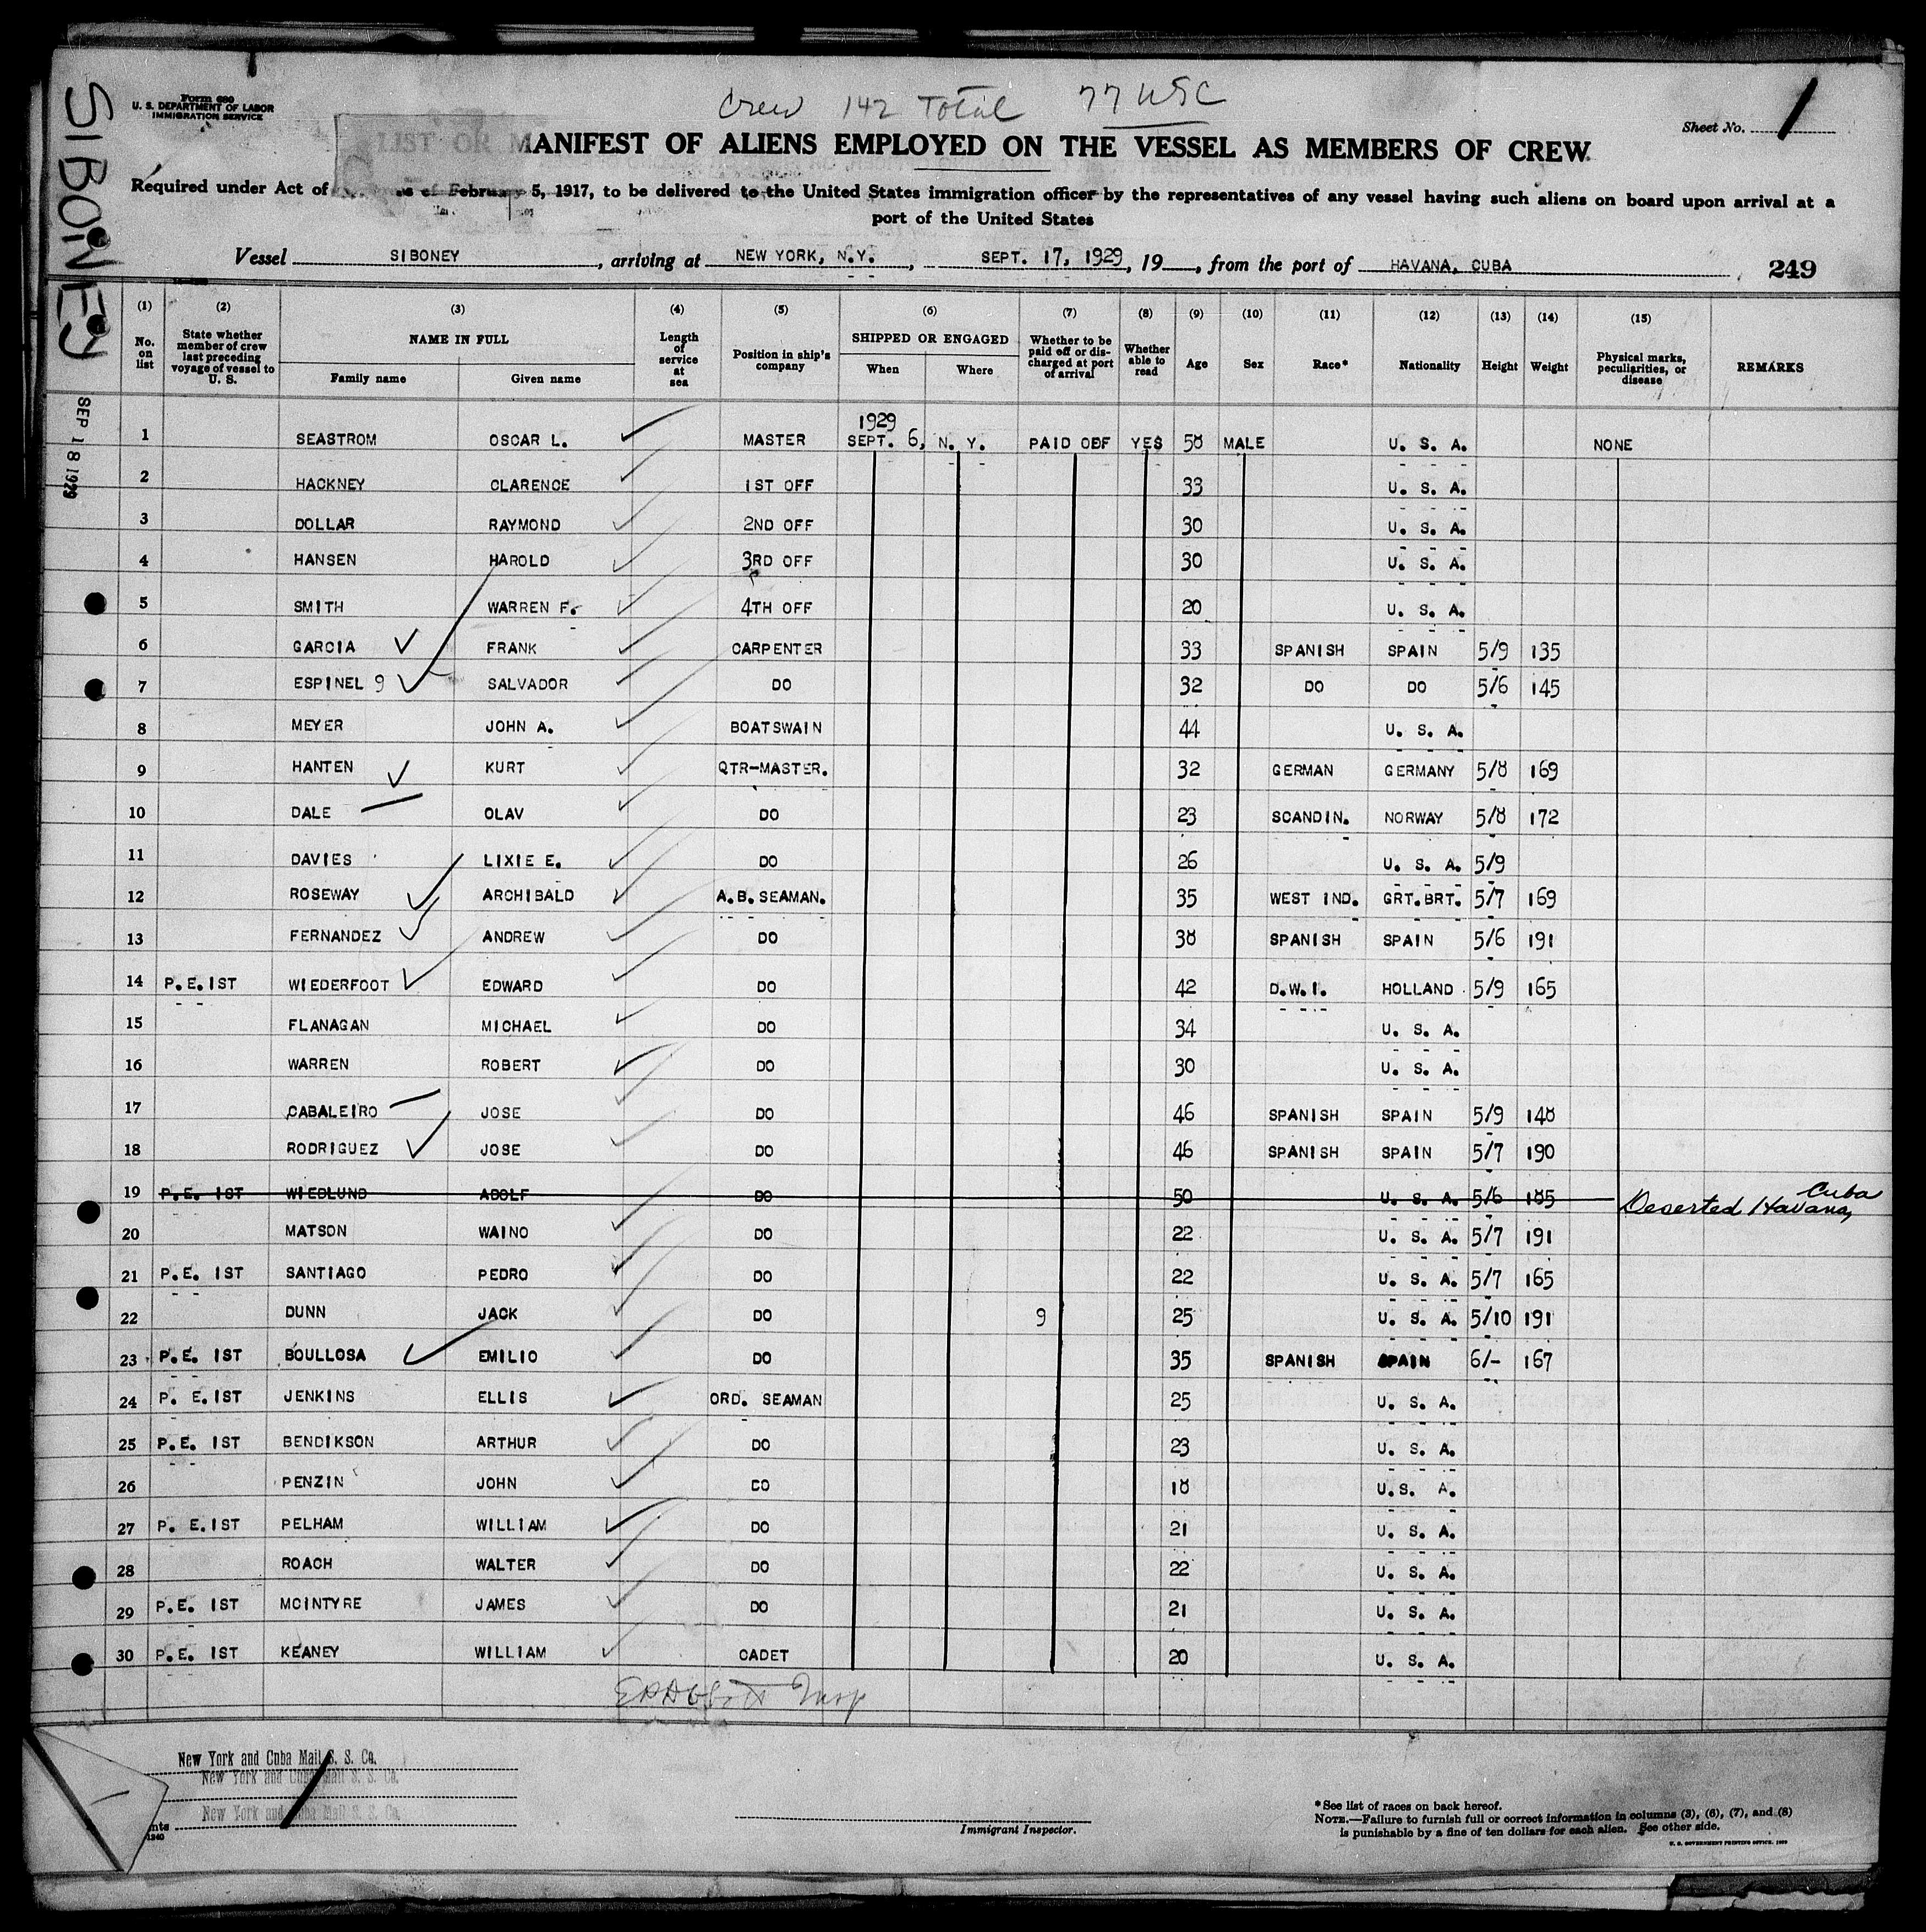 SIBONEY
SEP 18 1929
Form 680
U. S. DEPARTMENT OF LABOR
IMMIGRATION SERVICE
Crew 142 Total 77 USC
Sheet No. 1
LIST OR MANIFEST OF ALIENS EMPLOYED ON THE VESSEL AS MEMBERS OF CREW
Required under Act of February 5, 1917, to be delivered to the United States immigration officer by the representatives of any vessel having such aliens on board upon arrival at a
port of the United States
Vessel SIBONEY, arriving at NEW YORK, N.Y., SEPT. 17, 1929, 19, from the port of HAVANA, CUBA 249
(1) (2) (3) (4) (5) (6) (7) (8) (9) (10) (11) (12) (13) (14) (15)
No. on list
State whether member of crew last preceding voyage of vessel to U. S.
NAME IN FULL
Family name Given name
Length of service at sea
Position in ship's company
SHIPPED OR ENGAGED
When Where
Whether to be paid off or discharged at port of arrival
Whether able to read
Age Sex Race* Nationality Height Weight
Physical marks, peculiarities, or disease
REMARKS
1929
1 SEASTROM OSCAR L. MASTER SEPT. 6, N. Y. PAID OFF YES 58 MALE U. S. A. NONE
2 HACKNEY CLARENCE 1ST OFF 33 U. S. A.
3 DOLLAR RAYMOND 2ND OFF 30 U. S. A.
4 HANSEN HAROLD 3RD OFF 30 U. S. A.
5 SMITH WARREN F. 4TH OFF 20 U. S. A.
6 GARCIA FRANK CARPENTER 33 SPANISH SPAIN 5/9 135
7 ESPINEL 9 SALVADOR DO 32 DO DO 5/6 145
8 MEYER JOHN A. BOATSWAIN 44 U. S. A.
9 HANTEN KURT QTR-MASTER. 32 GERMAN GERMANY 5/8 169
10 DALE OLAV DO 23 SCANDIN. NORWAY 5/8 172
11 DAVIES LIXIE E. DO 26 U. S. A. 5/9
12 ROSEWAY ARCHIBALD A.B. SEAMAN. 35 WEST IND. GRT.BRT. 5/7 169
13 FERNANDEZ ANDREW DO 38 SPANISH SPAIN 5/6 191
14 P.E.1ST WIEDERFOOT EDWARD DO 42 D.W.I. HOLLAND 5/9 165
15 FLANAGAN MICHAEL DO 34 U. S. A.
16 WARREN ROBERT DO 30 U. S. A.
17 CABALEIRO JOSE DO 46 SPANISH SPAIN 5/9 148
18 RODRIGUEZ JOSE DO 46 SPANISH SPAIN 5/7 190
19 P.E. 1ST WIEDLUND ADOLF DO 50 U. S. A. 5/6 185 Deserted Havana, Cuba
20 MATSON WAINO DO 22 U. S. A. 5/7 191
21 P.E. 1ST SANTIAGO PEDRO DO 22 U. S. A. 5/7 165
22 DUNN JACK DO 9 25 U. S. A. 5/10 191
23 P.E. 1ST BOULLOSA EMILIO DO 35 SPANISH SPAIN 6/- 167
24 P. E.1ST JENKINS ELLIS ORD. SEAMAN 25 U. S. A.
25 P.E. 1ST BENDIKSON ARTHUR DO 23 U. S. A.
26 PENZIN JOHN DO 18 U.S. A.
27 P. E.1ST PELHAM WILLIAM DO 21 U. S. A.
28 ROACH WALTER DO 22 U. S. A.
29 P.E. 1ST MCINTYRE JAMES DO 21 U. S. A.
30 P.E. 1ST KEANEY WILLIAM CADET 20 U. S. A.
Insp
New York and Cuba Mail S. S. Co.
New York and Cuba Mail S. S. Co.
New York and Cuba Mail S. S. Co.
Immigrant Inspector.
*See list of races on back hereof.
NOTE.—Failure to furnish full or correct information in columns (3), (6), (7), and (8)
is punishable by a fine of ten dollars for each alien. See other side.
U. S. GOVERNMENT PRINTING OFFICE